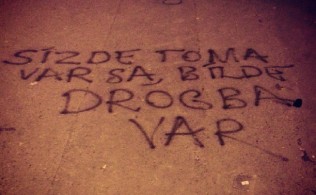 SİZDE TOMA
VAR SA, BİZDE
DROGBA
VAR